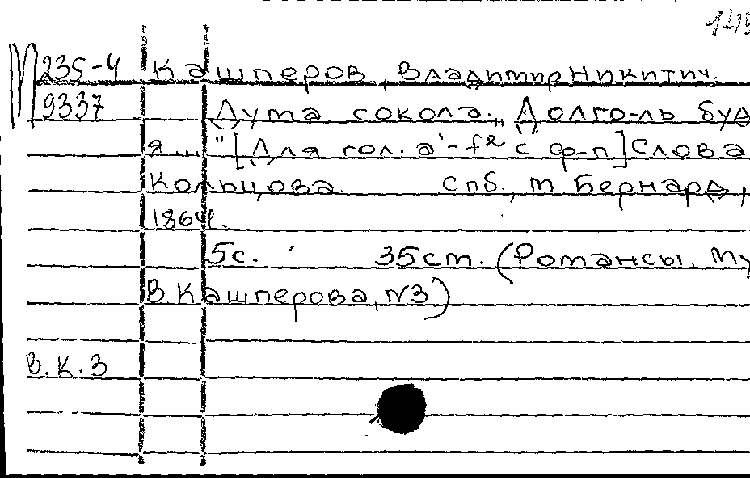 М 235-4 Кашперов, Владимир Никитич.
9337 Дума сокола. „Долго-ль буд
я..." [Для гол. a'-f² с ф-п] Слова
Кольцова. Спб., М. Бернард,
1864.
5с. 35см. (Романсы. Му
В. Кашперова, №3)
В.К.З